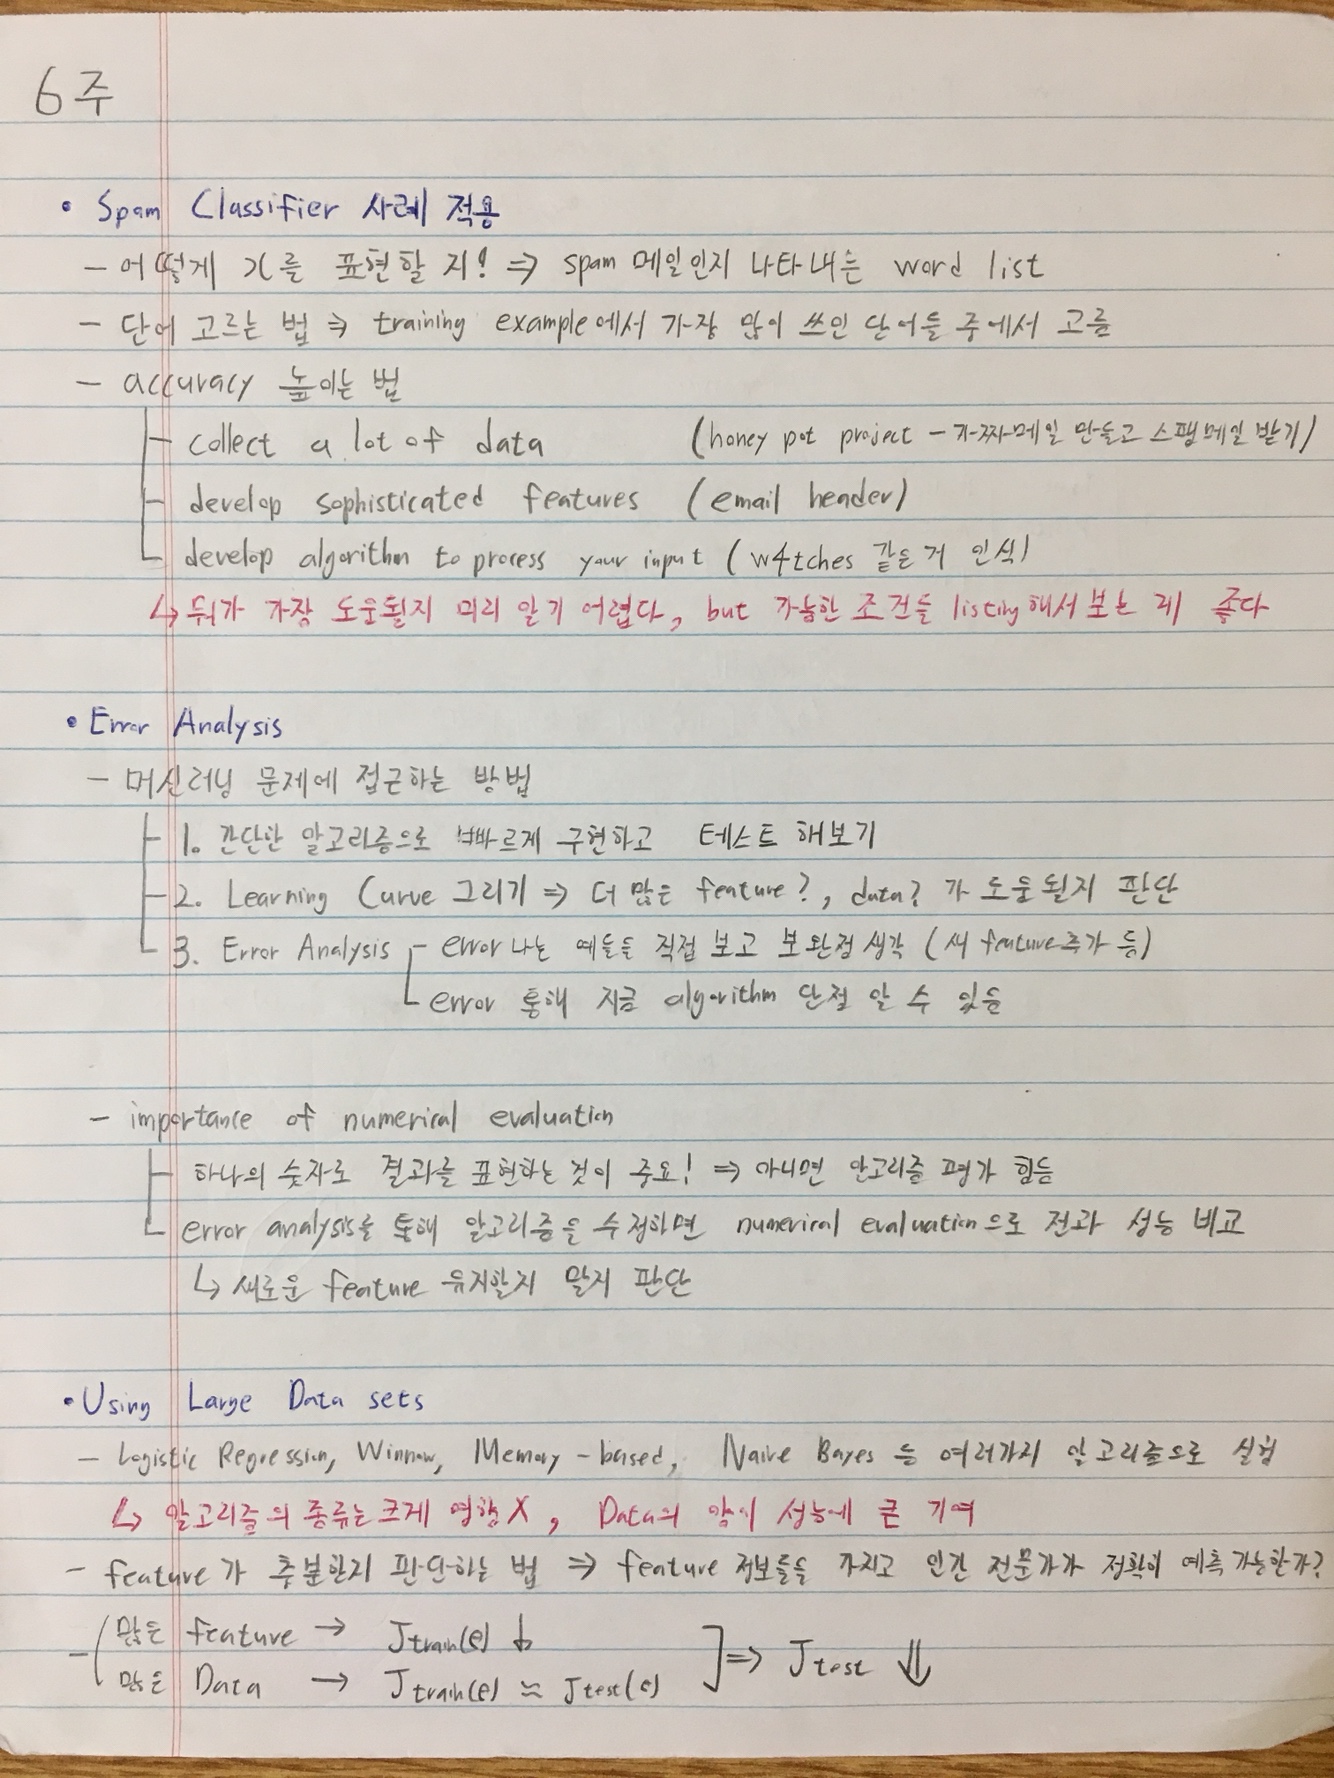 6주
• Spam Classifier 사례 적용
- 어떻게 x를 표현할 지! ⇒ spam 메일인지 나타내는 word list
- 단어 고르는 법 ⇒ training example에서 가장 많이 쓰인 단어들 중에서 고름
- accuracy 높이는 법
collect a lot of data (honey pot project - 가짜메일 만들고 스팸메일 받기)
develop sophisticated features (email header)
develop algorithm to process your input (w4tches 같은거 인식)
↳ 뭐가 가장 도움될지 미리 알기 어렵다, but 가능한 조건들 listing해서 보는 게 좋다
• Error Analysis
- 머신러닝 문제에 접근하는 방법
1. 간단한 알고리즘으로 빠르게 구현하고 테스트 해보기
2. Learning Curve 그리기 ⇒ 더 많은 feature?, data? 가 도움될지 판단
3. Error Analysis - error나는 예들을 직접 보고 보완점 생각 (새 feature추가 등)
error 통해 지금 algorithm 단점 알 수 있음
- importance of numerical evaluation
하나의 숫자로 결과를 표현하는 것이 중요! ⇒ 아니면 알고리즘 평가 힘듦
error analysis를 통해 알고리즘을 수정하면 numerical evaluation으로 전과 성능 비교
↳ 새로운 feature 유지할지 말지 판단
• Using Large Data sets
- Logistic Regression, Winnow, Memory-based, Naive Bayes 등 여러가지 알고리즘으로 실험
↳ 알고리즘의 종류는 크게 영향 X, Data의 양이 성능에 큰 기여
- feature가 충분한지 판단하는 법 ⇒ feature 정보들을 가지고 인간 전문가가 정확히 예측 가능한가?
- 많은 feature → Jtrain(θ) ↓
많은 Data → Jtrain(θ) ≈ Jtest(θ) ] ⇒ Jtest ⇓